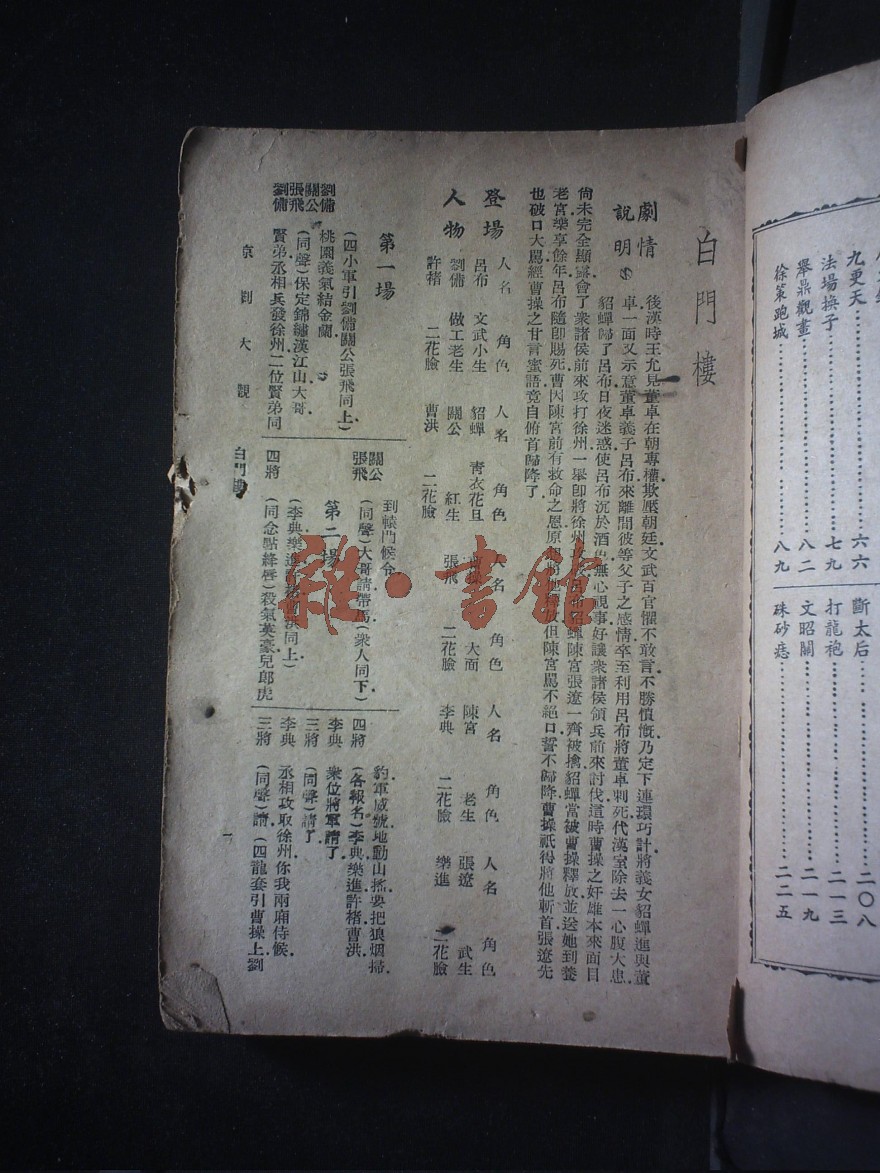 白門樓
劇情
說明
後漢時王允見董卓在朝專權欺壓朝廷文武百官懼不敢言不勝憤慨乃定下連環巧計將義女貂蟬進與董
卓一面又示意董卓義子呂布來離間彼等父子之感情卒至利用呂布將董卓刺死代漢室除去一心腹大患
貂蟬歸了呂布日夜迷惑使呂布沉於酒色無心視事好讓衆諸侯領兵前來討伐這時曹操之奸雄本來面目
尙未完全顯露會了衆諸侯前來攻打徐州一舉卽將徐州攻破呂布貂蟬陳宮張遼一齊被擒貂蟬當被曹操釋放並送她到養
老宮樂享餘年呂布隨卽賜死曹因陳宮前有救命之恩原想將他釋放但陳宮罵不絕口誓不歸降曹操祇得將他斬首張遼先
也破口大罵經曹操之甘言蜜語竟自俯首歸降了
登場
人物
人名 角色 人名 角色 人名 角色 人名 角色 人名 角色
呂布 文武小生 貂蟬 靑衣花旦 曹操 大面 陳宮 老生 張遼 武生
劉備 做工老生 關公 紅生 張飛 二花臉 李典 二花臉 樂進 二花臉
許褚 二花臉 曹洪 二花臉
第一場
(四小軍引劉備關公張飛同上)
劉備 桃園義氣結金蘭
關公張飛 (同聲)保定錦繡漢江山大哥
劉備 賢弟丞相兵發徐州二位賢弟同
到轅門候令
關公張飛 (同聲)大哥請帶馬(衆人同下)
第二場
(李典樂進許褚曹洪同上)
四將 (同念點絳唇)殺氣英豪兒郎虎
豹軍威號地動山搖要把狼烟掃
四將 (各報名)李典樂進許褚曹洪
李典 衆位將軍請了
三將 (同聲)請了
李典 丞相攻取徐州你我兩廂侍候
三將 (同聲)請(四龍套引曹操上劉
京劇大觀
白門樓
一
九更天 六六
法場換子 七九
舉鼎觀畫 八二
徐策跑城 八九
斷太后 二〇八
打龍袍 二一三
文昭關 二一九
硃砂痣 二二五
雜·書館